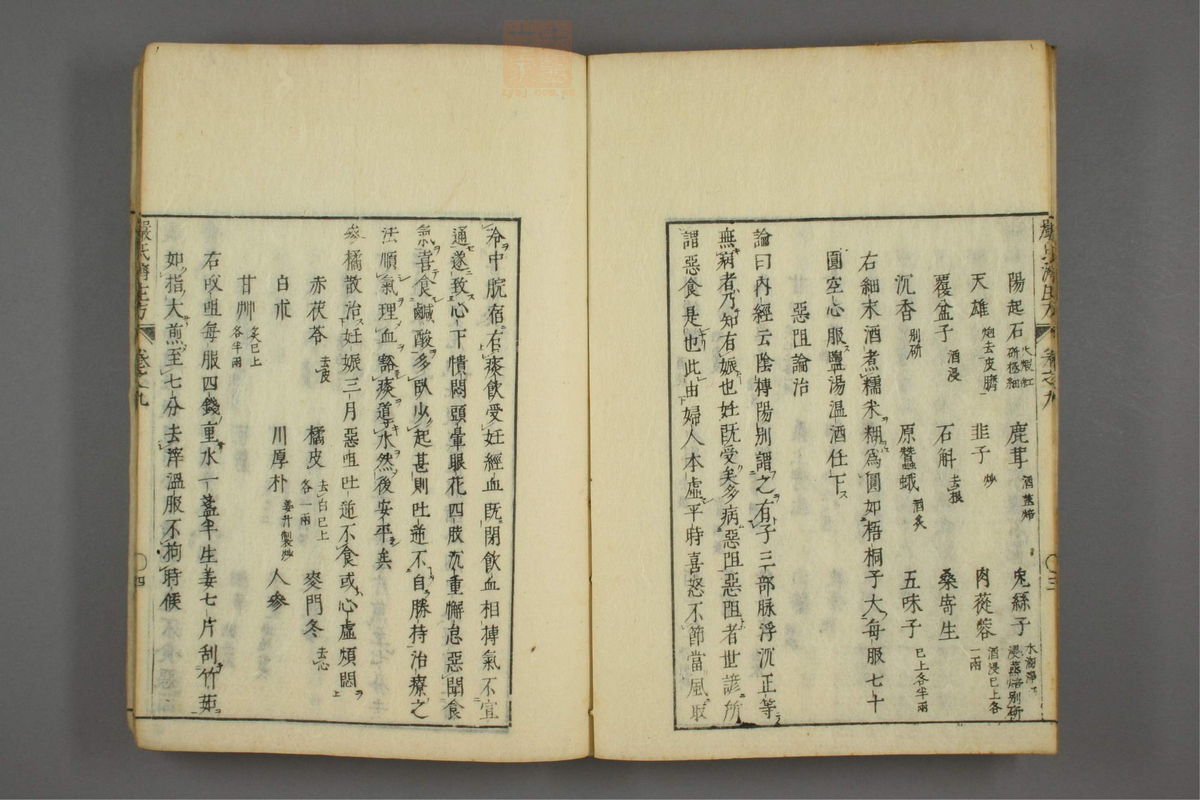 陽起石火煅紅研極細 鹿茸酒蒸焙 兔絲子水淘淨酒浸蒸焙別研
天雄炮去皮臍 韭子炒 肉蓯蓉酒浸已上各一兩
覆盆子酒浸 石斛去根 桑寄生
沉香別研 原蠶蛾酒炙 五味子已上各半兩
右細末酒煮糯米糊爲圓如梧桐子大每服七十
圓空心服鹽湯溫酒任下
惡阻論治
論曰內經云陰摶陽別謂之有子三部脉浮沉正等
無病者乃知有娠也妊既受矣多病惡阻惡阻者世諺所
謂惡食是也此由婦人本虛平時喜怒不節當風取
嚴氏濟生方 卷之九 〇三
嚴氏濟生方 卷之九 〇四
冷中脘宿有痰飲受妊經血既閉飲血相搏氣不宣
通遂致心下憒悶頭暈眼花四肢沉重懈怠惡聞食
氣喜食鹹酸多臥少起甚則吐逆不自勝持治療之
法順氣理血豁痰導水然後安平矣
參橘散治妊娠三月惡阻吐逆不食或心虛煩悶
赤茯苓去皮 橘皮去白已上各一兩 麥門冬去心
白朮 川厚朴姜汁製炒 人參
甘艸炙已上各半兩
右㕮咀每服四錢重水一盞半生姜七片刮竹茹
如指大煎至七分去滓溫服不拘時候